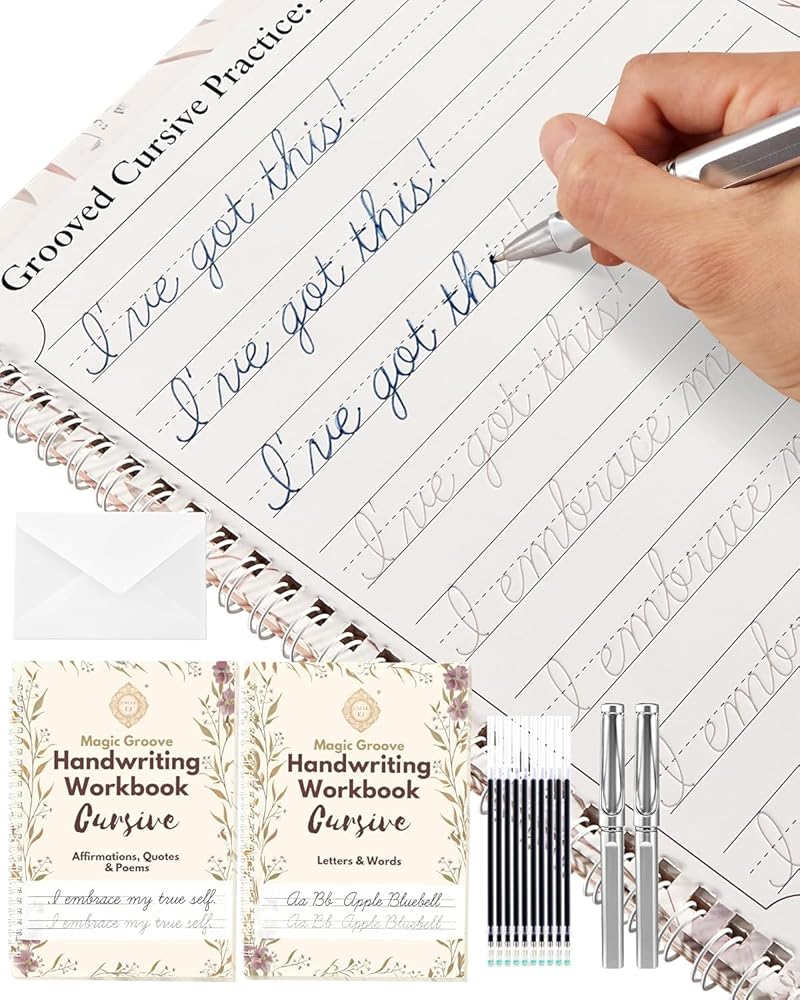 Grooved Cursive Practice:
I've got this!
I've got this!
I've got thi
I've got this!
I embrace m
I embrace m
I embra
I
Magic Groove
Handwriting
Workbook
Cursive
Affirmations, Quotes
& Poems
I embrace my true self.
I embrace my true self.
Magic Groove
Handwriting
Workbook
Cursive
Letters & Words
Aa Bb Apple Bluebell
Aa Bb Apple Bluebell